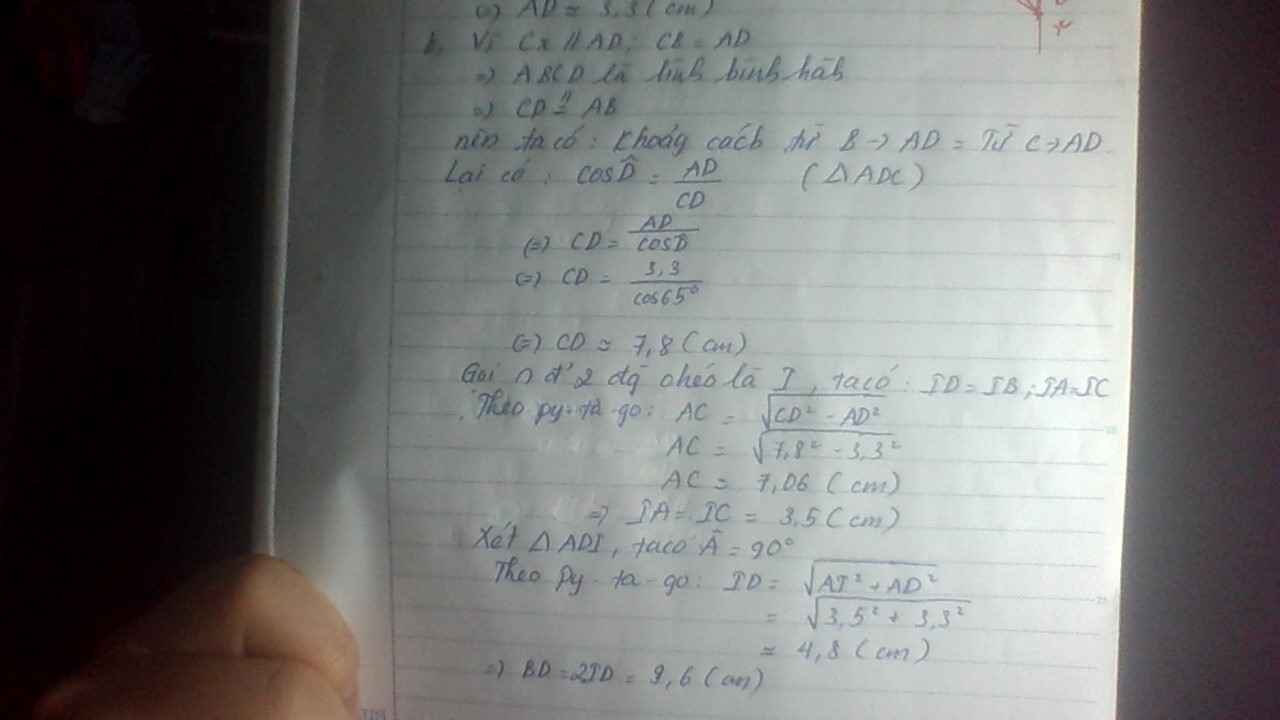 (=) AD ≈ 3,3 (cm)
b, Vì Cx // AD; CB = AD
=) ABCD là hình bình hàh
=) CD // = AB
nên ta có: Khoảg cách từ B -> AD = Từ C -> AD.
Lại có: cosD̂ = AD / CD (ΔADC)
(=) CD = AD / cosD̂
(=) CD = 3,3 / cos65°
(=) CD ≈ 7,8 (cm)
Gọi ∩ đ' 2 đg chéo là I, ta có: ID = IB; IA = IC
Theo py-ta-go: AC = √(CD² - AD²)
AC = √(7,8² - 3,3²)
AC = 7,06 (cm)
=) IA = IC = 3,5 (cm)
Xét Δ ADI, ta có Â = 90°
Theo Py-ta-go: ID = √(AI² + AD²)
= √(3,5² + 3,3²)
≈ 4,8 (cm)
=) BD = 2ID = 9,6 (cm)